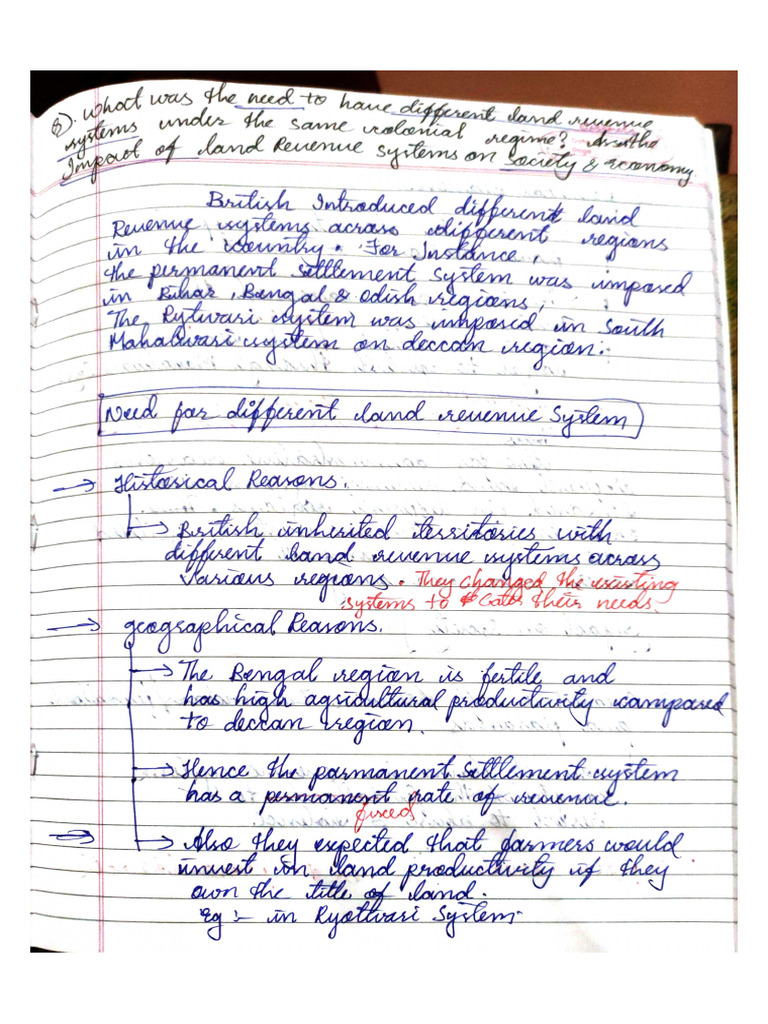 Q). What was the need to have different land revenue
systems under the same colonial regime? Assess the
Impact of land Revenue systems on society & economy.
British Introduced different land
Revenue systems across different regions
in the country. For Instance,
the permanent settlement system was imposed
in Bihar, Bengal & Odish regions,
The Rytwari system was imposed in South
Mahalwari system on deccan region.
Need for different land revenue System
→ Historical Reasons.
→ British inherited territories with
different land revenue systems across
various regions. They changed the existing
systems to cater their needs.
→ geographical Reasons.
→ The Bengal region is fertile and
has high agricultural productivity compared
to deccan region.
→ Hence the parmanent settlement system
has a permanent rate of revenue.
fixed
→ Also they expected that farmers would
invest in land productivity if they
own the title of land.
Eg :- in Ryottwari System